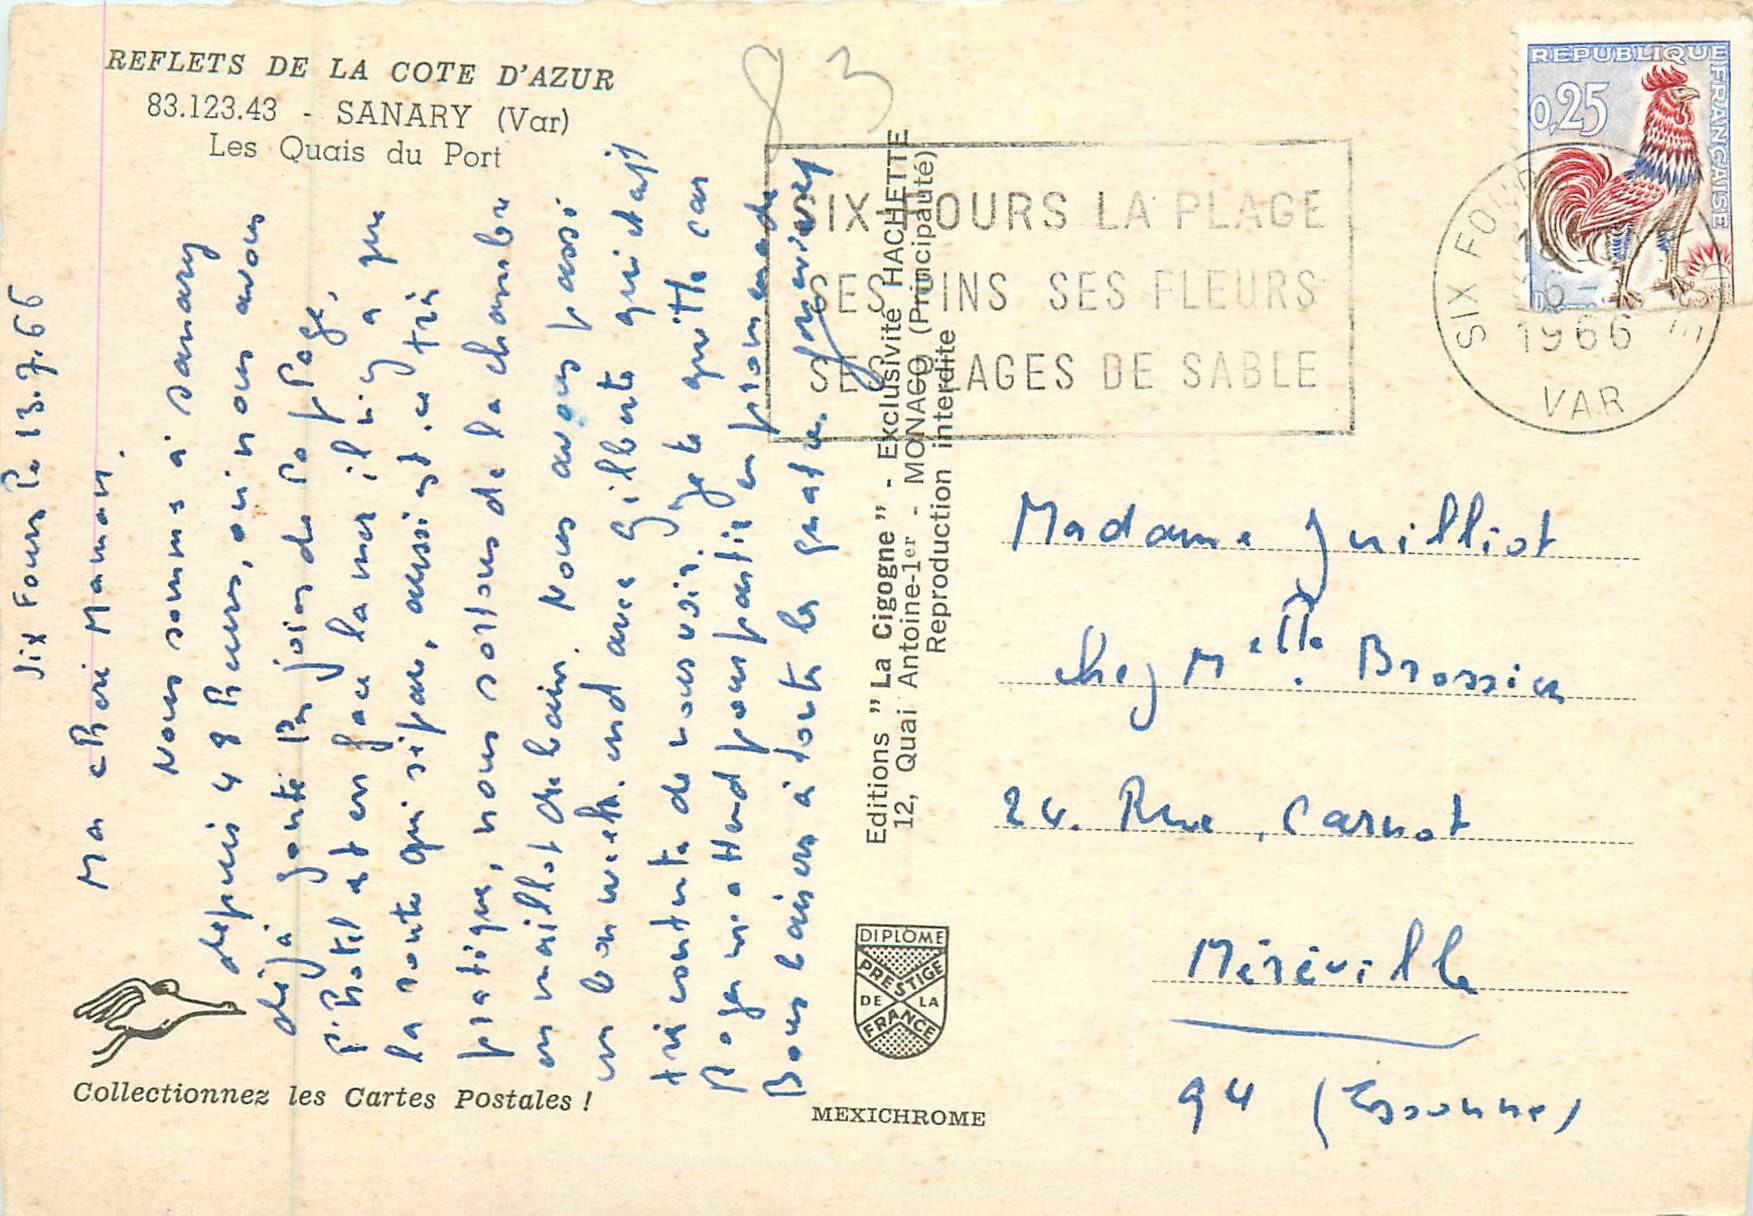 REFLETS DE LA COTE D'AZUR
83.123.43 - SANARY (Var)
Les Quais du Port
83
REPUBLIQUE FRANCAISE
0,25
SIX FOURS
1966
VAR
SIX FOURS LA PLAGE
SES PINS SES FLEURS
SES PLAGES DE SABLE
Six Fours le 13.7.66
Ma chère Maman.
Nous somme à Sanary
depuis 48 heures, où nous avons
déjà gouté les joies de la plage,
l'hotel est en face la mer il n'y a que
la route qui sépare, aussi est.ce très
pratique, nous sortons de la chambre
en maillot de bain. Nous avons passé
un bon week.end avec Gilberte qui était
très contente de nous voir. Je te quitte car
Roger m'attend pour partir en promenade
Bons baisers à toute la
Editions "La Cigogne" - Exclusivité HACHETTE
12, Quai Antoine-1er - MONACO (Principauté)
Reproduction interdite
Madame Juilliot
chez Melle. Brossier
24. Rue Carnot
Méréville
94 (Essonne)
DIPLOME
PRESTIGE
DE LA
FRANCE
Collectionnez les Cartes Postales !
MEXICHROME